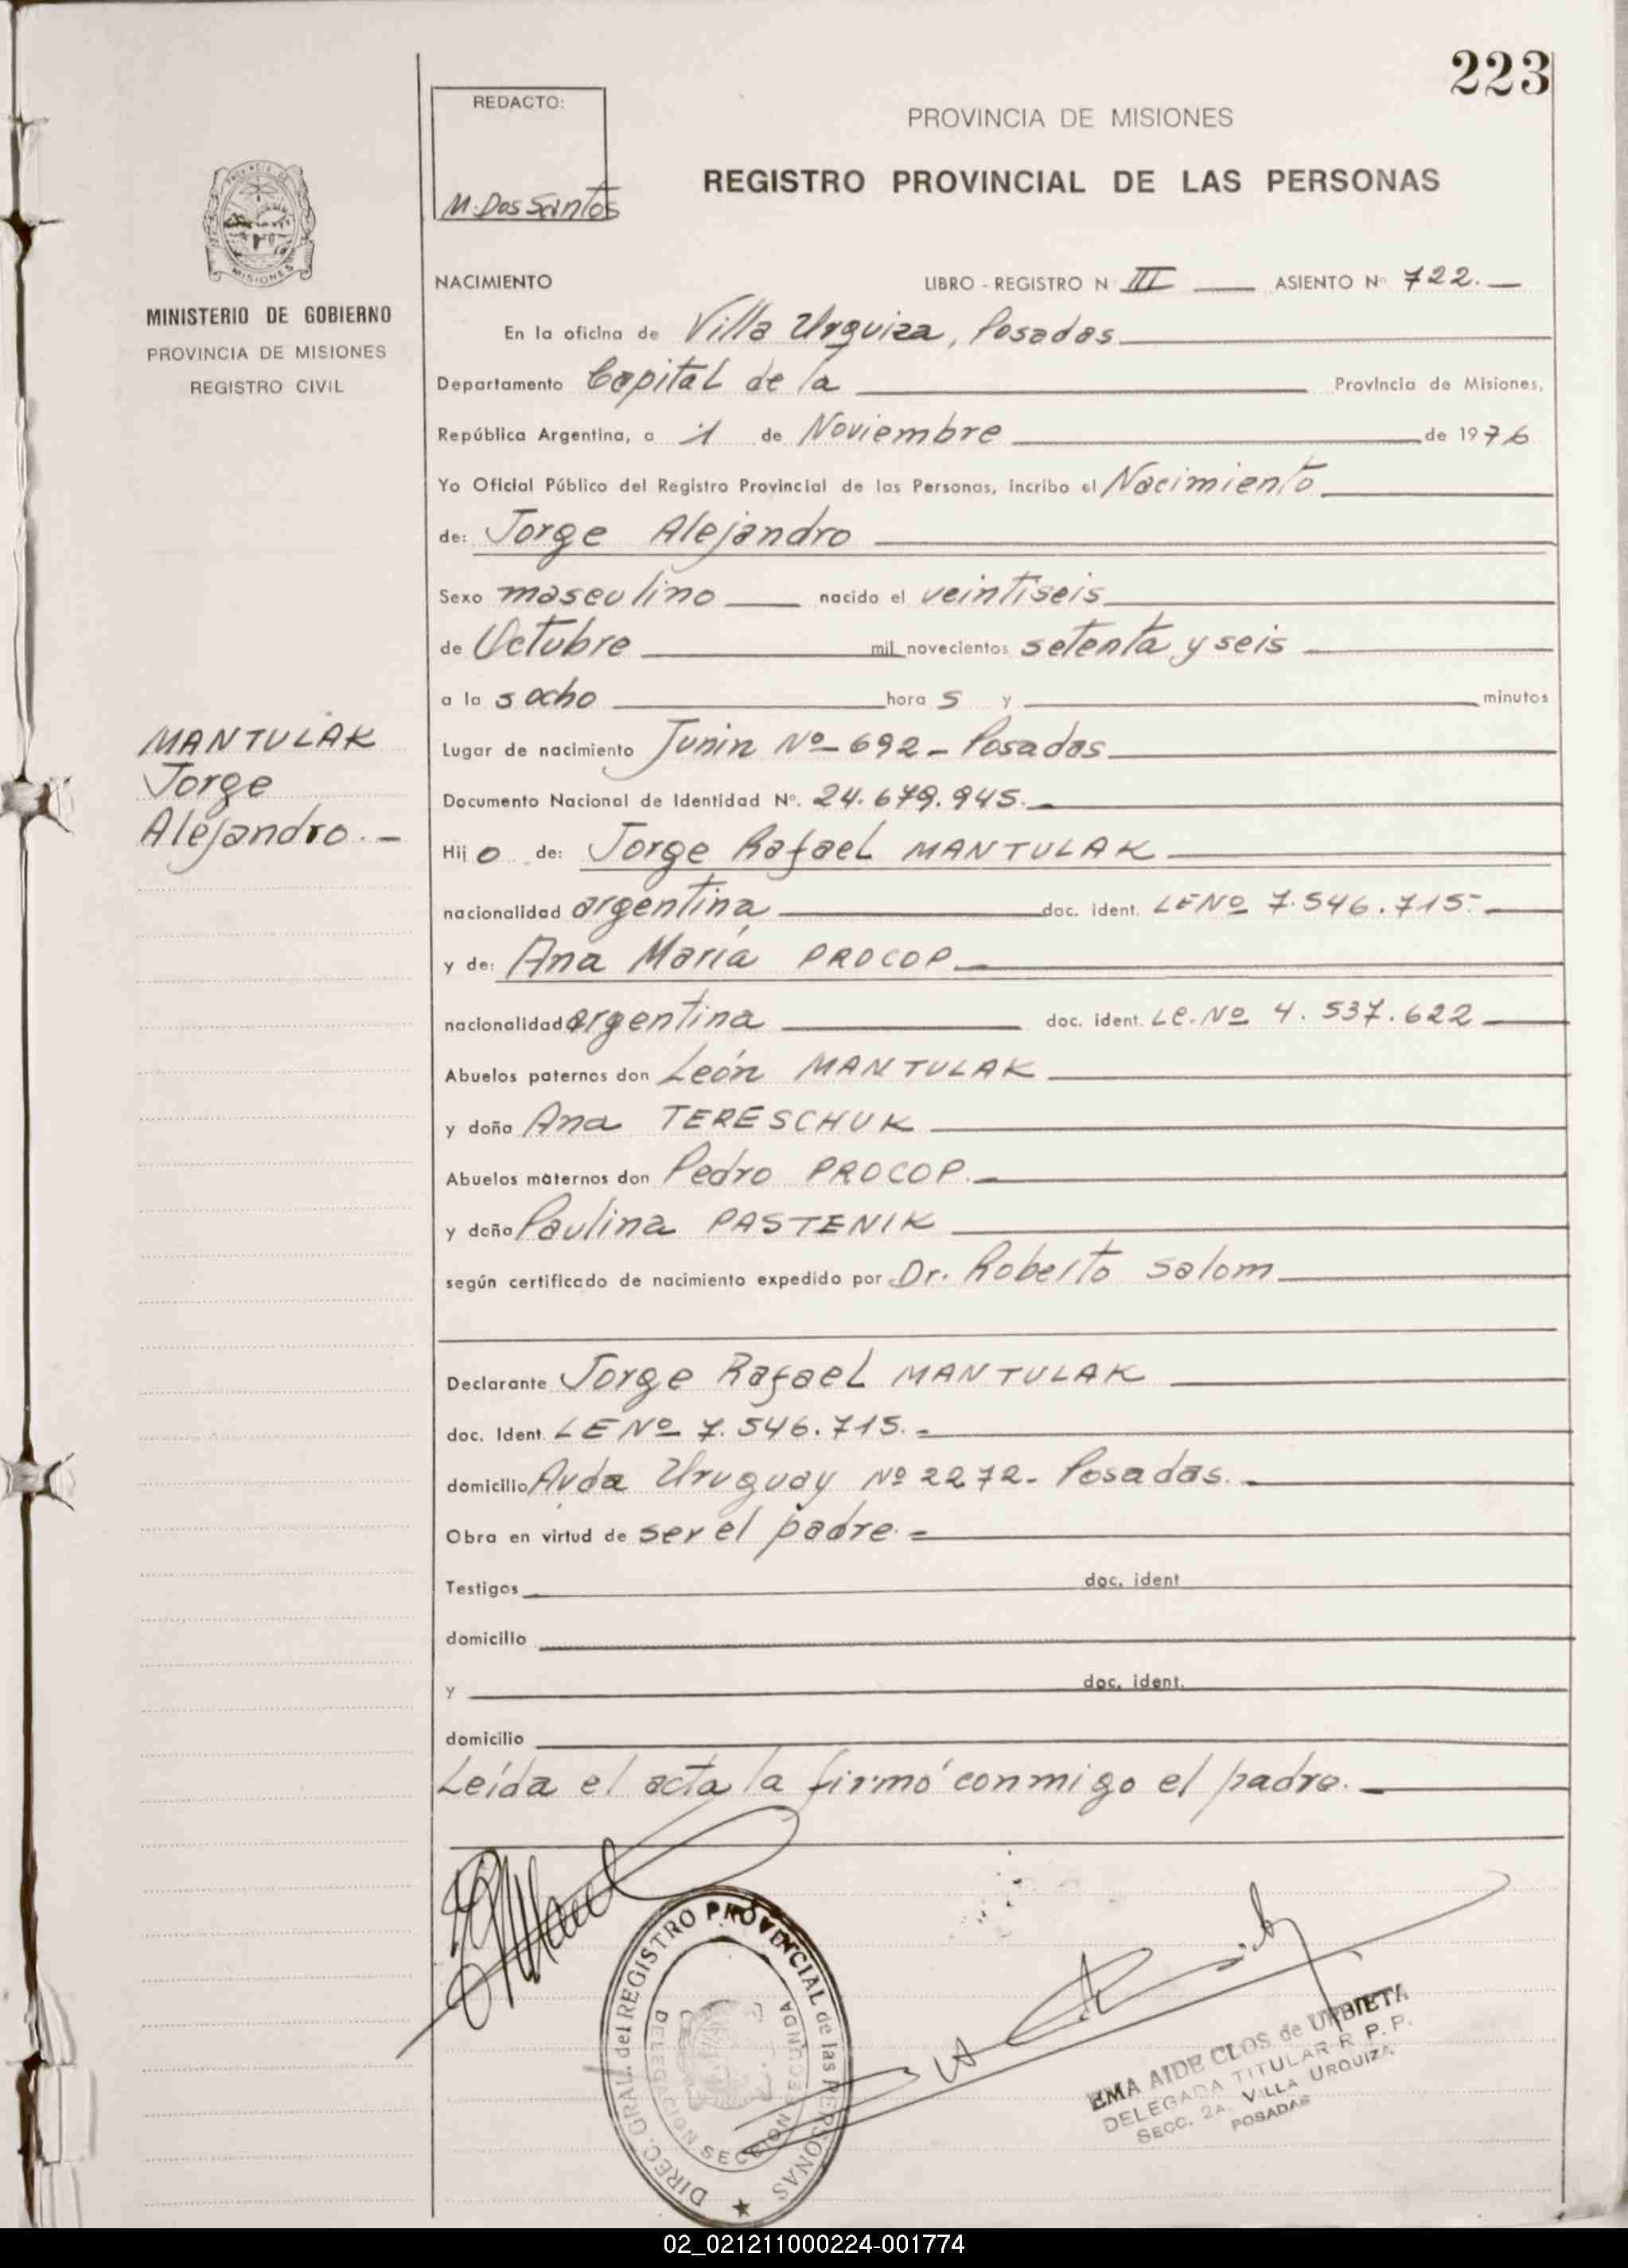 223
REDACTO:
M. Dos Santos
PROVINCIA DE MISIONES
REGISTRO PROVINCIAL DE LAS PERSONAS
PROVINCIA DE
MISIONES
MINISTERIO DE GOBIERNO
PROVINCIA DE MISIONES
REGISTRO CIVIL
NACIMIENTO LIBRO - REGISTRO N III ASIENTO Nº 722.
En la oficina de Villa Urquiza, Posadas
Departamento Capital de la Provincia de Misiones,
República Argentina, a 1 de Noviembre de 1976
Yo Oficial Público del Registro Provincial de las Personas, incribo el Nacimiento
de: Jorge Alejandro
Sexo masculino nacido el veintiseis
de Octubre mil novecientos setenta y seis
a la s ocho hora s y minutos
MANTULAK
Jorge
Alejandro.-
Lugar de nacimiento Junin Nº 692 - Posadas
Documento Nacional de Identidad Nº. 24.679.945.-
Hij o de: Jorge Rafael MANTULAK
nacionalidad argentina doc. ident. LE Nº 7.546.715.-
y de: Ana María PROCOP
nacionalidad argentina doc. ident. LC. Nº 4.537.622
Abuelos paternos don León MANTULAK
y doña Ana TERESCHUK
Abuelos maternos don Pedro PROCOP.-
y doña Paulina PASTENIK
según certificado de nacimiento expedido por Dr. Roberto Salom
Declarante Jorge Rafael MANTULAK
doc. Ident. LE Nº 7.546.715.-
domicilio Avda Uruguay Nº 2272- Posadas.-
Obra en virtud de ser el padre.-
Testigos doc. ident
domicilio
y doc. ident.
domicilio
Leída el acta la firmó conmigo el padre.-
DIREC. GRAL. del REGISTRO PROVINCIAL de las PERSONAS
DELEGACION SECCION SEGUNDA
EMA AIDE CLOS de URBIETA
DELEGADA TITULAR R. P. P.
SECC. 2A. VILLA URQUIZA
POSADAS
02_021211000224-001774